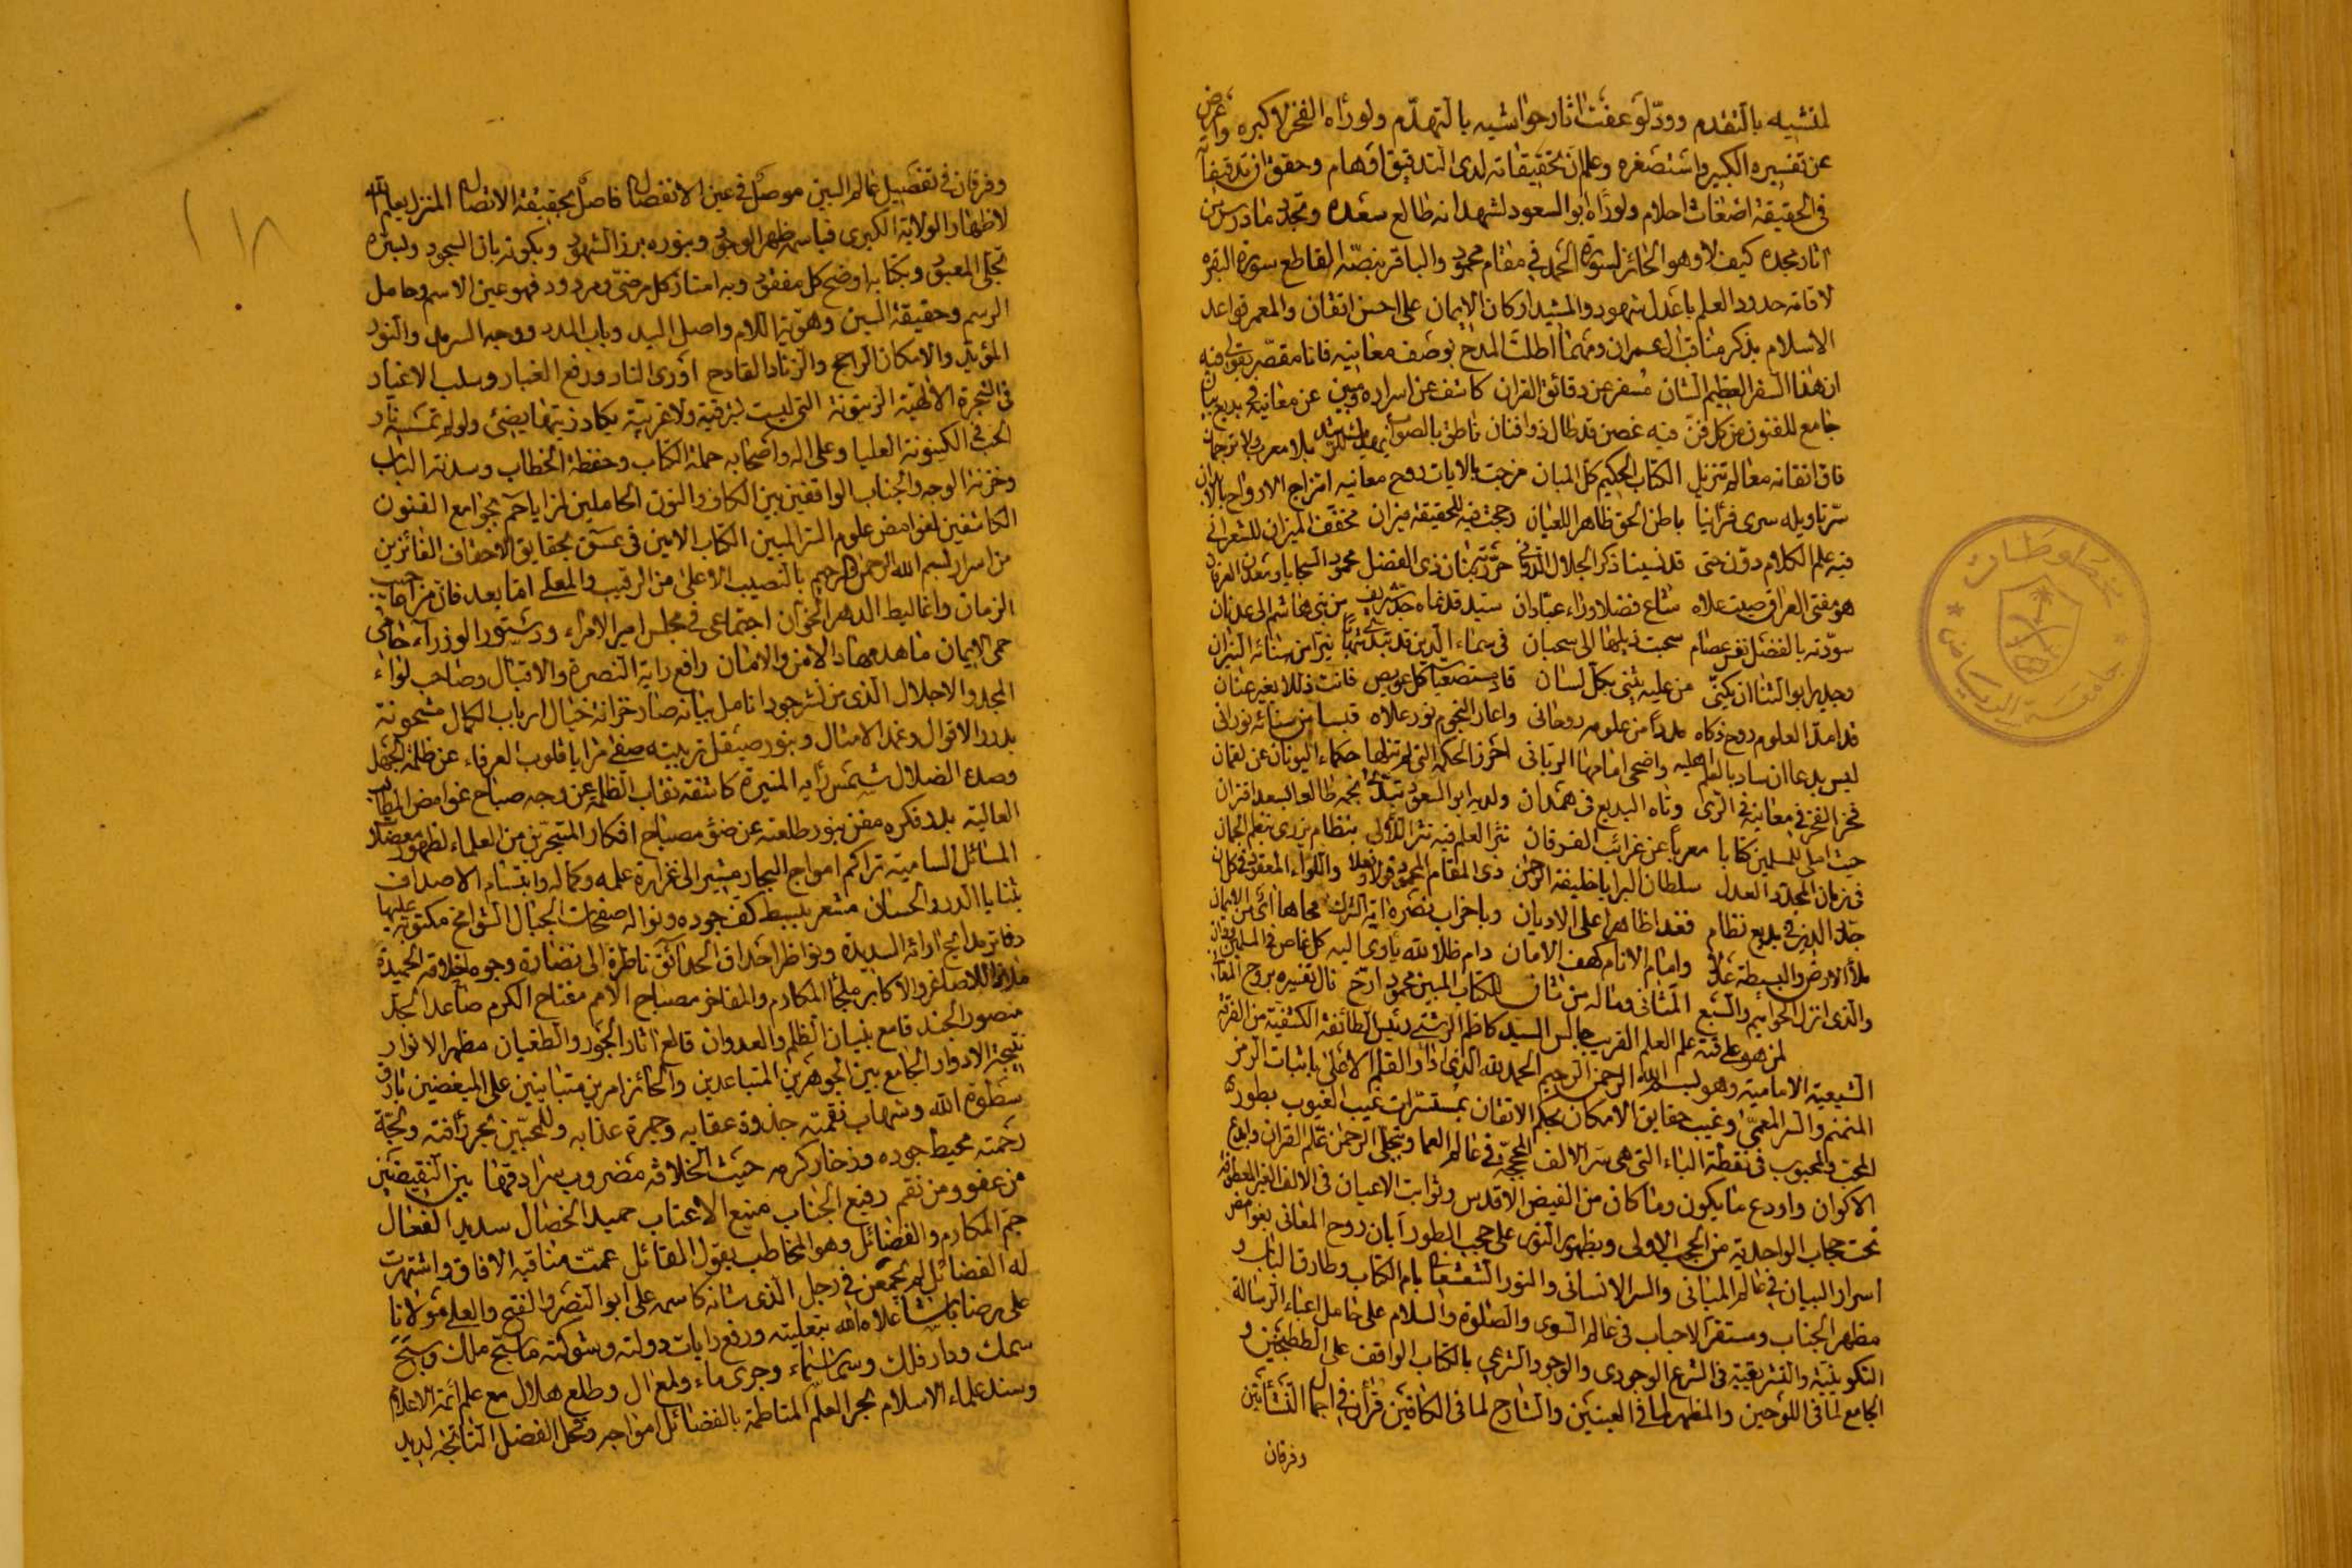 لمنشيه بالتقدم وودّ لو عفت اثار حواشيه بالتهدّم ولو رأه الفخر لاكبره واعرض
عن تفسيره الكبير واستصغره وعلم ان تحقيقاته لدى التدقيق اوهام وحقق ان تدقيقاته
في الحقيقة اضغاث احلام ولو رأه ابو السعود لشهد انه طالع سعده وتجدد ما درس من
اثار مجده كيف لا وهو الحائز لسورة الحمد في مقام محمود والباقر بنصّه القاطع سورة البقره
لاقامة حدود العلم باعدل شهود والمشيد اركان الايمان على احسن اتقان والمعمر قواعد
الاسلام بذكر مناقب ال عمران ومهما اطلت المدح بوصف معانيه فانا مقصّر بقولي فيه
ان هذا السفر العظيم الشان مسفر عن دقائق القران كاشف عن اسراره ومبين عن معانيه في بديع بيان
جامع للفنون من كل فنّ فيه غصن قد طال ذو افنان ناطق بالصواب
فاق اتقانه معالم تنزيل الكتاب الحكيم كل المبان مزجت بالايات روح معانيه امتزاج الارواح بالابدان
سرّ تاويله سرى فرأينا باطن الحق ظاهرا للعيان رجحت فيه للحقيقة ميزان مخففت الميزان للشعراني
فيه علم الكلام دوّن حتى قد نسينا ذكر الجلال الدواني ذي الفضل محمود السجايا ومعدن العرفان
هو مفتي العراق صيت علاه شاع فضلا وراء عبّادان سيد قد نماه جدّ شريف من بني هاشم الى عدنان
سوّدته بالفضل نفس عصام سحبت ذيلها الى سحبان في سماء الدين قد تبدّى شهابا نيرا من سنائه النيران
وجدير ابو الثنا ان يكنّى من عليه يثنى بكل لسان قاد مستصعبات كل عويص فانت ذللا بغير عنان
قد امدّ العلوم روح ذكاه مددا من علوم روحاني واعار النجوم نور علاه قبسا من سنائه نوراني
ليس بدعا ان ساد بالعلم اهليه واضحى امامها الرباني احرز الحكمة التي لم تنلها حكماء اليونان عن لقمان
فخر الفخر في معانيه في الرى وتاه البديع في همدان ولديه ابو السعود تبدّى نجمه طالعا بسعد اقتران
حيث املى للمسلمين كتابا معربا عن غرائب الفرقان نثر العلم فيه نثر اللآلى بنظام يزري بنظم الجمان
في زمان المجدد العدل سلطان البرايا خليفة الرحمن ذي المقام المحمود قولا وفعلا واللواء المعقود في كل ان
جدّد الدين في بديع نظام فغدا ظاهرا على الاديان وباحزاب نصره اية الشرك محاها
ملأ الارض والبسيطة عدلا وامام الانام كهف الامان دام ظلا لله يأوي اليه كل عاص في المسلمين
والذي انزل الحواميم والسبع المثاني وما له من ثان للكتاب المبين محمود ارّخ نال تفسيره بروح المعاني
لمن هو على قنة علم العلم القريب جالس السيد كاظم الرشتي رئيس الطائفة الكشفية من الفرقة
الشيعية الامامية وهو بسم الله الرحمن الرحيم الحمد لله الذي ادار القلم الاعلى باثبات الرمز
المنمنم والسر المعمّى وغيب حقايق الامكان بحكم الاتقان بمستسرات غيب الغيوب بطورى
المحب والمحبوب في نقطة الباء التي هي سر الالف المحجبة في عالم العما وتجلى الرحمن علم القران وابدع
الاكوان واودع ما يكون وما كان من الفيض الاقدس وثوابت الاعيان في الالف الغير المعطوفة
تحت حجاب الواحدية من الحجب الاولى وبظهور النور على حجب الطور أبان روح المعاني بغوامض
اسرار البيان في عالم المباني والسر الانساني والنور الشعشعاني بام الكتاب وطارق الباب و
مظهر الجناب ومستقر الاحباب في عالم السوى والصلوة والسلام على حامل اعباء الرسالة
التكوينية والتشريعية في الشرع الوجودي والوجود الشرعي بالكتاب الواقف على الططنجين و
الجامع لما في اللوحين والمظهر لما في العينين والشارح لما في الكافين قرأن في اجمال النشأتين
وفرقان
وفرقان في تفصيل عالم البين موصل في عين الانفصال فاصل بحقيقة الاتصال المنزل بعلم الله
لاظهار الولاية الكبرى فباسمه ظهر الوجود وبنوره برز الشهود وبكونه بان السجود وبسره
تجلى المعبود وبكتابه اوضح كل مفقود وبه امتاز كل مرضيّ ومردود فهو عين الاسم وحامل
الرسم وحقيقة السين وهوية اللام واصل اليد وباب المدد ووجه السرمد والنور
المؤبد والامكان الراجح والزناد القادح اورى النار ورفع الغبار وسلب الاغيار
في الشجرة الالهية الزيتونة التي ليست بشرقية ولا غربية يكاد زيتها يضيئ ولو لم تمسسه نار
الحب في الكينونة العليا وعلى اله واصحابه حملة الكتاب وحفظة الخطاب وسدنة الباب
وخزنة الوجه والجناب الواقفين بين الكاف والنون الحاملين لمزايا حم بجوامع الفنون
الكاشفين لغوامض علوم السر المبين الكتاب الامين في عسق بحقايق الاحقاف الفائزين
من اسرار بسم الله الرحمن الرحيم بالنصيب الاعلى من الرقيب والمعلى اما بعد فان من اعاجيب
الزمان واغاليط الدهر الخوّان اجتماعي في مجلس امير الامراء ودستور الوزرآء حامي
حمى الايمان ماهد مهاد الامن والامان رافع راية النصرة والاقبال وصاحب لواء
المجد والاجلال الذي من نثر جود انامل بيانه صار خزانة خيال ارباب الكمال مشحونة
بدرر الاقوال وغرر الامثال وبنور صيقل تربيته صفى مرايا قلوب العرفاء عن ظلمة الجهل
وصدع الضلال شمس رأيه المنيرة كاشفة نقاب الظلمة عن وجه صباح غوامض المطالب
العالية بدر فكره مغن بنور طلعته عن ضوء مصباح افكار المتبحرين من العلماء لظهور معضلات
المسائل السامية تراكم امواج البحار مشير الى غزارة علمه وكماله وابتسام الاصداف
بثنايا الدرر الحسان مشعر ببسط كف جوده ونواله صفحات الجبال الشوامخ مكتوبة عليها
دفاتر مدايح ارائه السديدة ونواظر احداق الحدائق ناظرة الى نضارة وجوه اخلاقه الحميدة
ملاذا للاصاغر والاكابر ملجأ المكارم والمفاخر مصباح الامم مفتاح الكرم صاعد الجدّ
منصور الجند قامع بنيان الظلم والعدوان قالع اثار الجور والطغيان مظهر الانوار
نتيجة الادوار الجامع بين الجوهرين المتباعدين والحائز امرين متباينين على المبغضين بارق
سطوة الله وشهاب نقمته جذوة عقابه وجمرة عذابه وللمحبين بحر رأفته ولجة
رحمته محيط جوده وذخار كرمه حيث الخلافة مضروب سرادقها بين النقيضين
من عفو ومن نقم رفيع الجناب منيع الاعتاب حميد الخصال سديد الفعال
جمّ المكارم والفضائل وهو المخاطب بقول القائل عمت مناقبه الافاق واشتهرت
له الفضائل لم تجمعن في رجل الذي شانه كاسمه على ابو النصر والفتح والعلى مولانا
على رضا باشا علاه الله بتعليته ورفع رايات دولته وشوكته ما سبح ملك وسبح
سمك ودار فلك وسما سماء وجرى ماء ولمع ال وطلع هلال مع علم ائمة الاعلام
وسند علماء الاسلام بحر العلم المتلاطمة بالفضائل امواجه وفحل الفضل الناتجة لديه
مخطوطات
جامعة الرياض